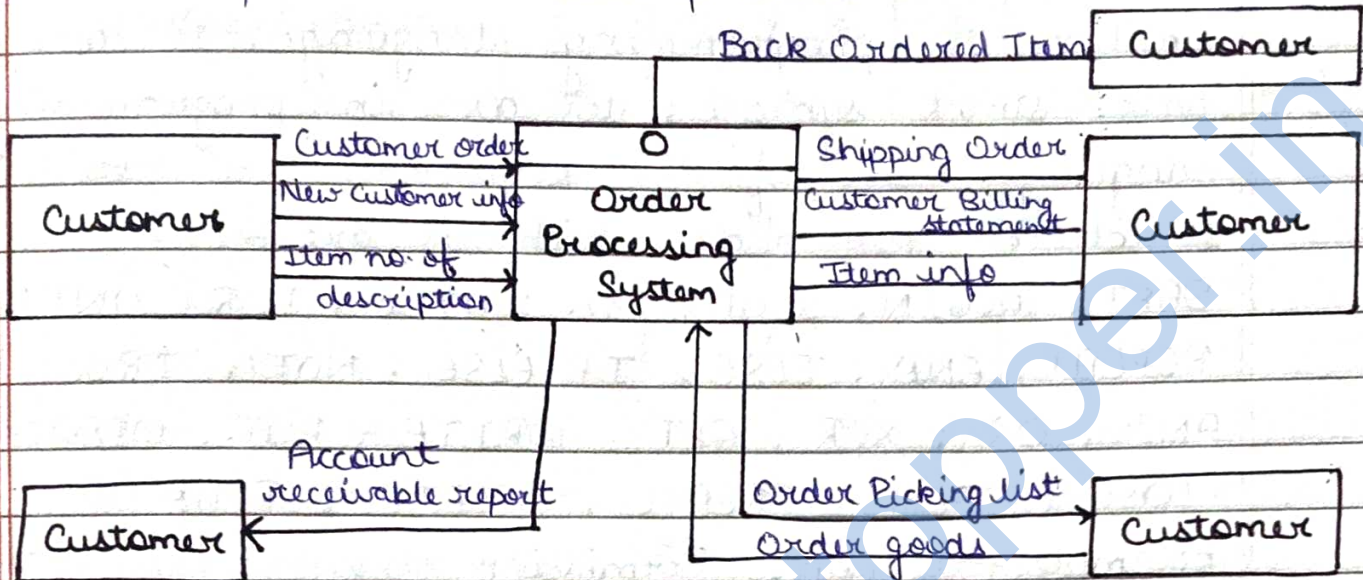 Back Ordered Item
Customer
Customer
Customer order
New Customer info
Item no. of
description
O
Order
Processing
System
Shipping Order
Customer Billing
statement
Item info
Customer
Account
receivable report
Customer
Order Picking list
Order goods
Customer
topper.in